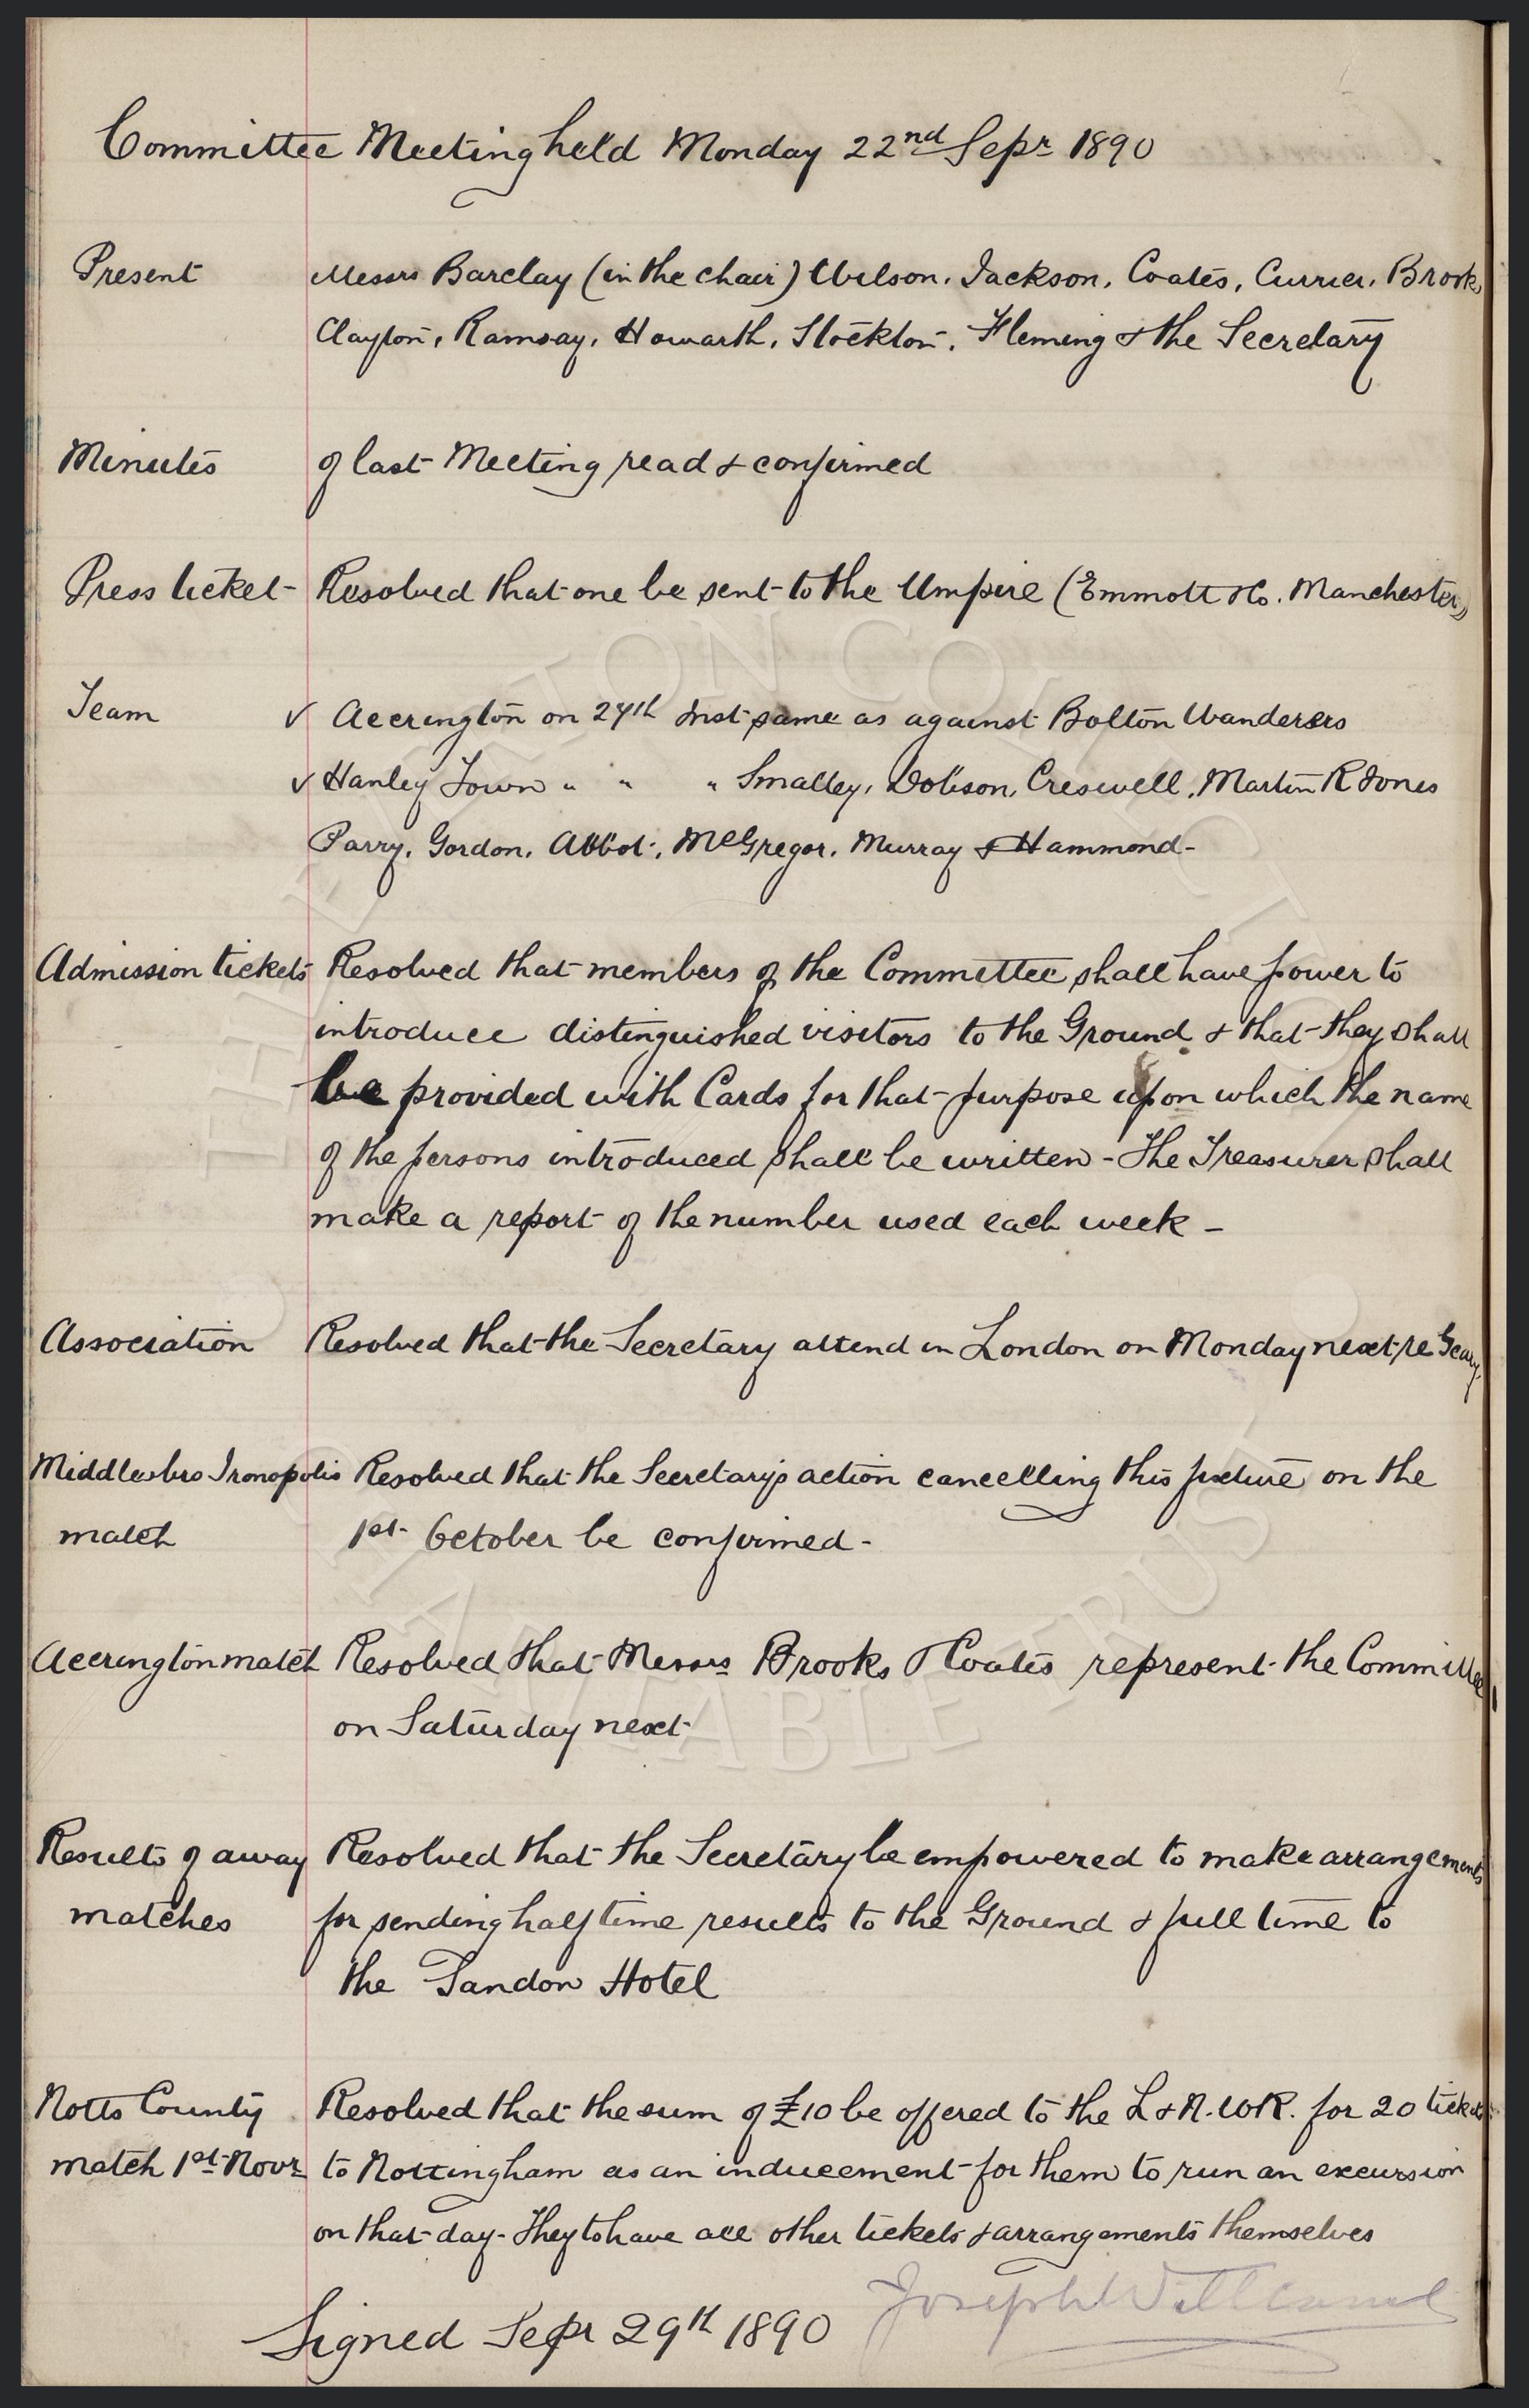 Committee Meeting held Monday 22nd Sepr 1890
Present Messrs Barclay (in the chair) Wilson, Jackson, Coates, Currier, Brooks
Clayton, Ramsay, Howarth, Stockton, Fleming & the Secretary
Minutes of last Meeting read & confirmed
Press ticket - Resolved that one be sent to the Umpire (Emmott & Co. Manchester)
Team ✓ Accrington on 27th Inst same as against Bolton Wanderers
✓ Hanley Town " " " Smalley, Dobson, Creswell, Martin R Jones
Parry, Gordon, Abbot, McGregor, Murray & Hammond -
Admission tickets Resolved that members of the Committee shall have power to
introduce distinguished visitors to the Ground & that they shall
be provided with Cards for that purpose upon which the name
of the persons introduced shall be written - The Treasurer shall
make a report of the number used each week -
Association Resolved that the Secretary attend in London on Monday next re Geary.
Middlesbro Ironopolis Resolved that the Secretary's action cancelling this fixture on the
match 1st October be confirmed -
Accrington match Resolved that Messrs Brooks & Coates represent the Committee
on Saturday next
Results of away Resolved that the Secretary be empowered to make arrangements
matches for sending half time results to the Ground & full time to
the Sandon Hotel
Notts County Resolved that the sum of £10 be offered to the L & N. W R. for 20 tickets
match 1st Novr to Nottingham as an inducement for them to run an excursion
on that day - They to have all other tickets & arrangements themselves
Signed Sepr 29th 1890 Joseph Williams
THE EVERTON COLLECTION
CHARITABLE TRUST